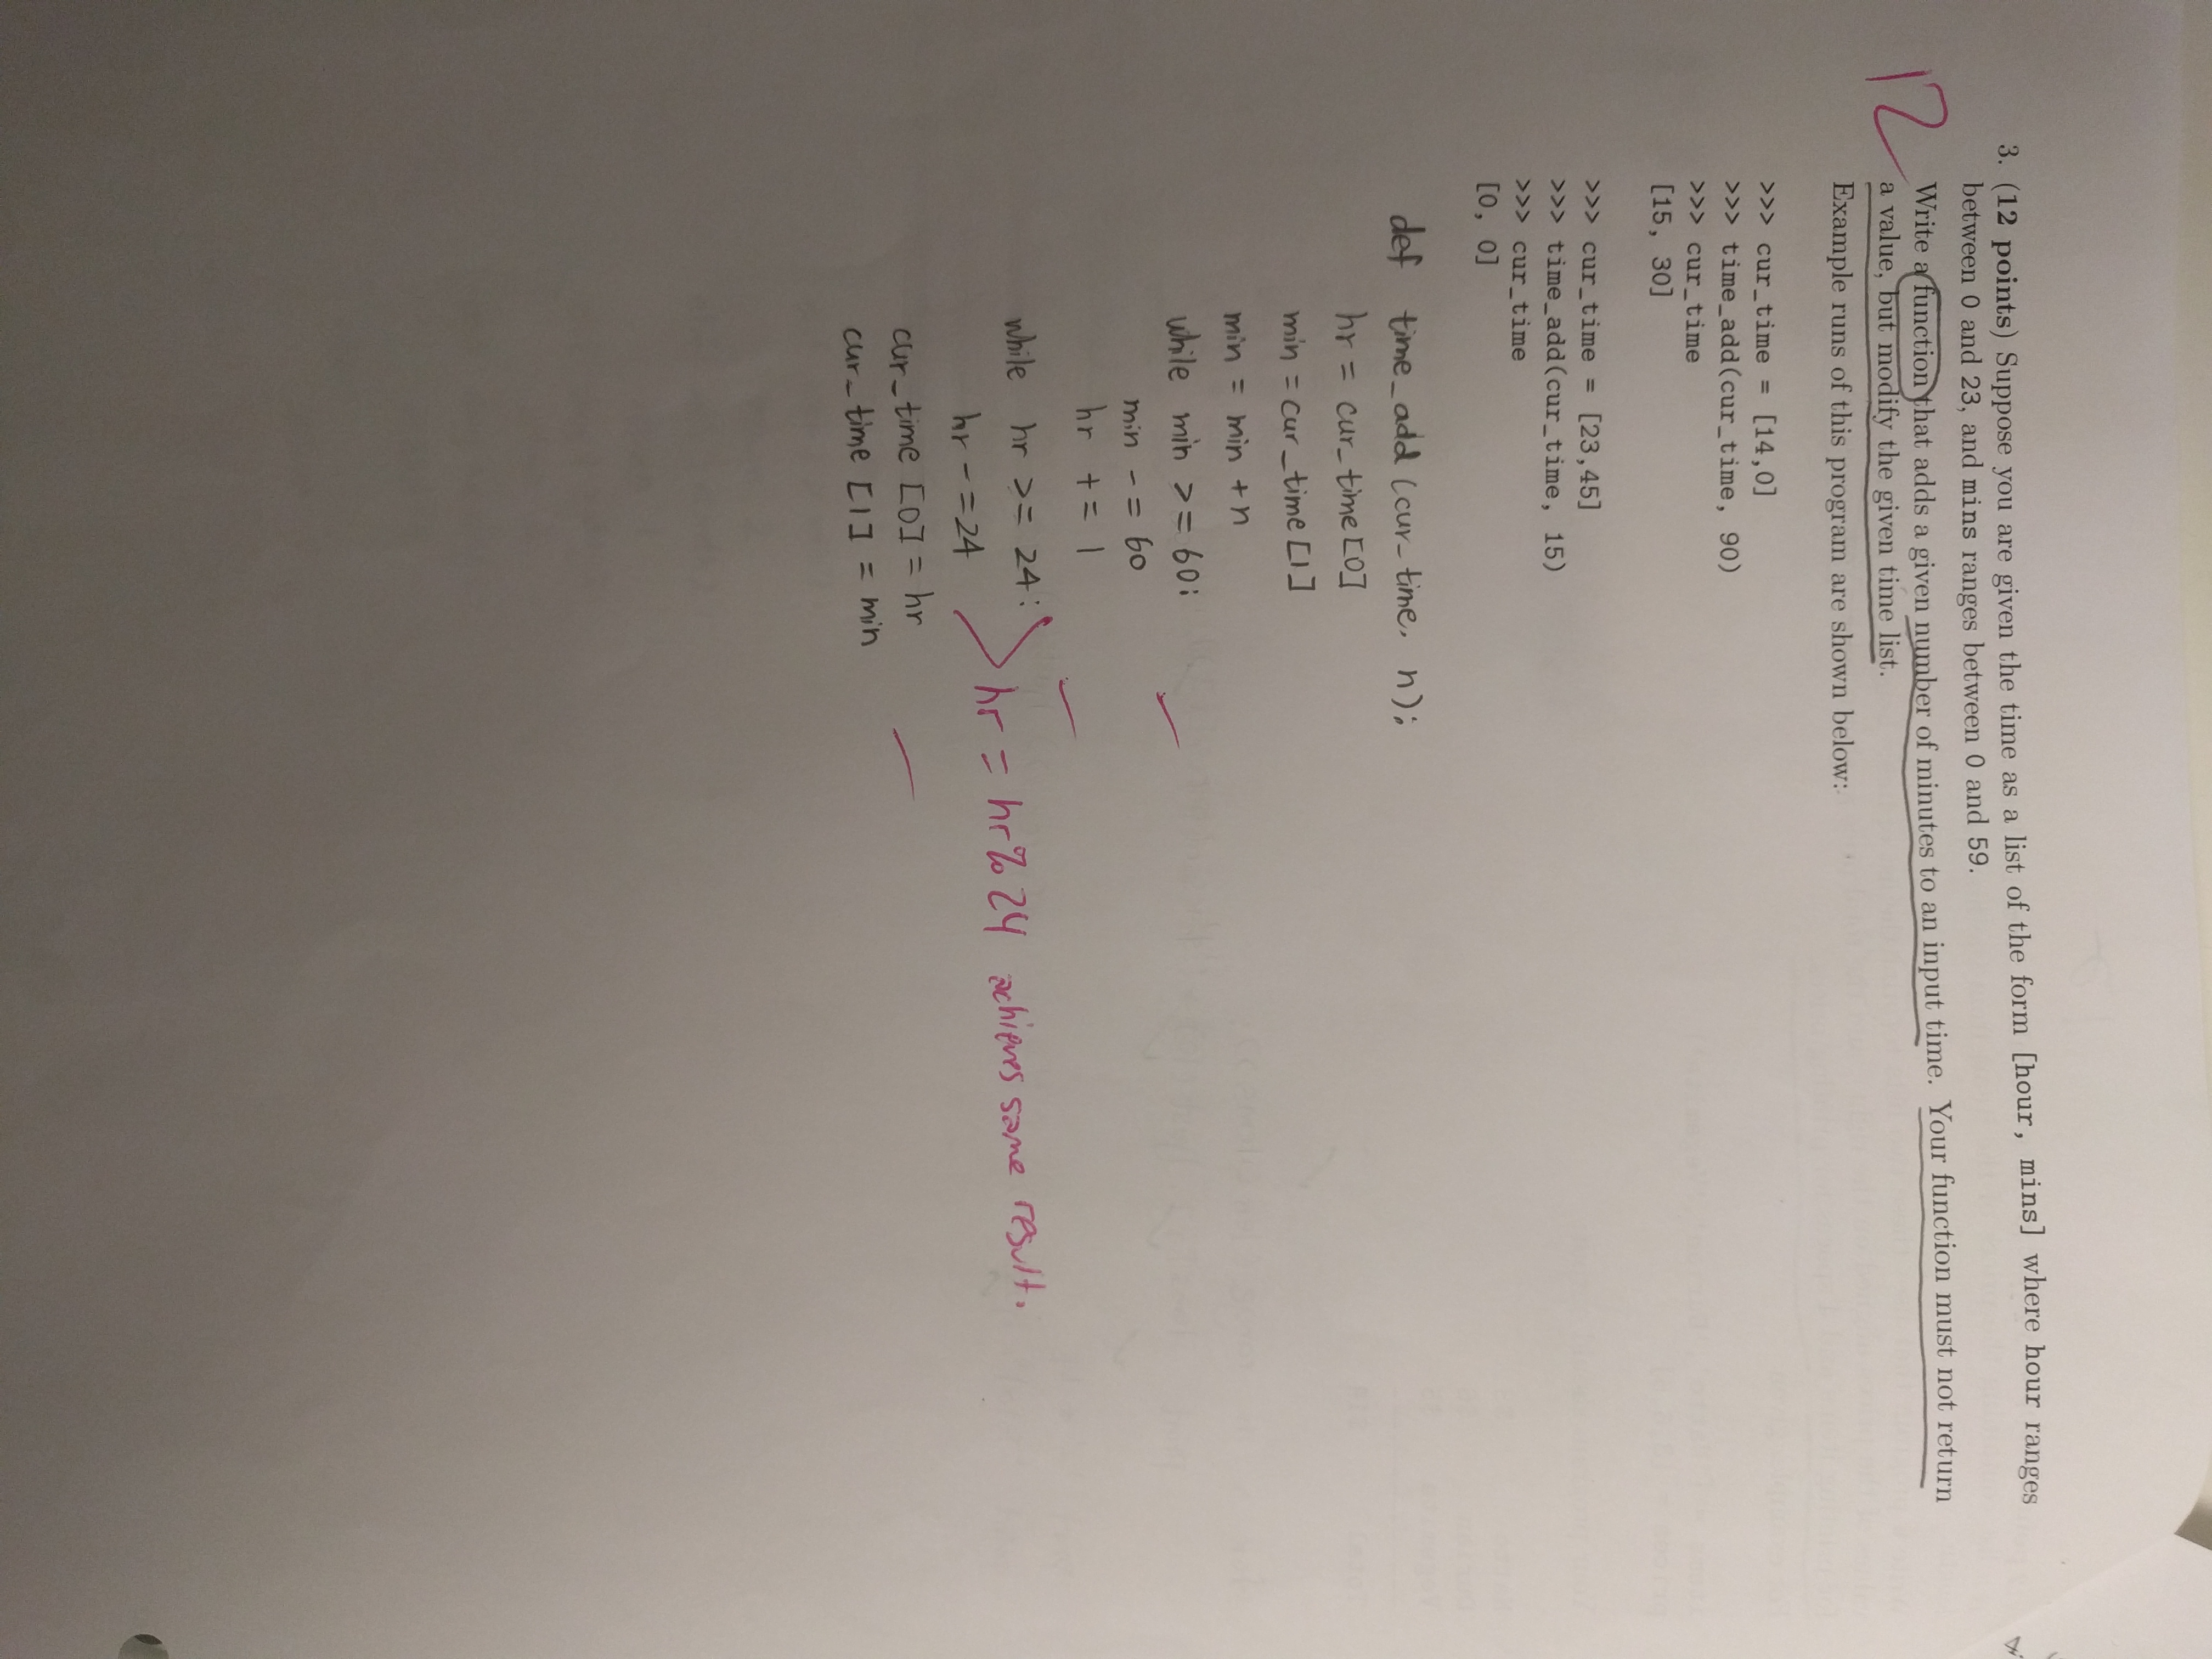 12
3. (12 points) Suppose you are given the time as a list of the form [hour, mins] where hour ranges
between 0 and 23, and mins ranges between 0 and 59.
Write a function that adds a given number of minutes to an input time. Your function must not return
a value, but modify the given time list.
Example runs of this program are shown below:
>>> cur_time = [14,0]
>>> time_add(cur_time, 90)
>>> cur_time
[15, 30]
>>> cur_time = [23,45]
>>> time_add(cur_time, 15)
>>> cur_time
[0, 0]
def time_add (cur_time, n):
hr = cur_time[0]
min = cur_time[1]
min = min + n
while min >= 60:
min -= 60
hr += 1
while hr >= 24:
hr -= 24 hr = hr%24 achieves same result.
cur_time [0] = hr
cur_time [1] = min